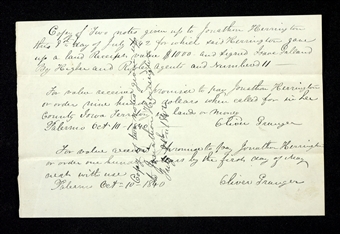 Copy of Two notes given up to Jonathan Herrington
this 9th day of July 1847. for which said Herrington gave
up a land Receipt, value $1000. and signed Isaac Galland
By Higbee and Agents and numbered 11
For value received promise to pay Jonathan Herrington
or order nine hundred dolears when called for in Lee
County Iowa land or money
Palermo Oct 10 Oliver Granger
For value received I promise to pay Jonathan Herrington
or order one hundred by the first day of May
next with use
Palermo Oct 10th 1840 Oliver Granger
Copy of two notes given